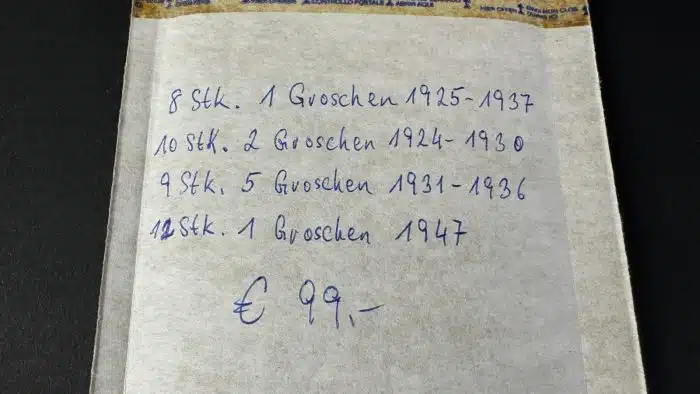 CONTROLLO POSTALE
8 Stk. 1 Groschen 1925-1937
10 Stk. 2 Groschen 1924-1930
9 Stk. 5 Groschen 1931-1936
12 Stk. 1 Groschen 1947
€ 99,-